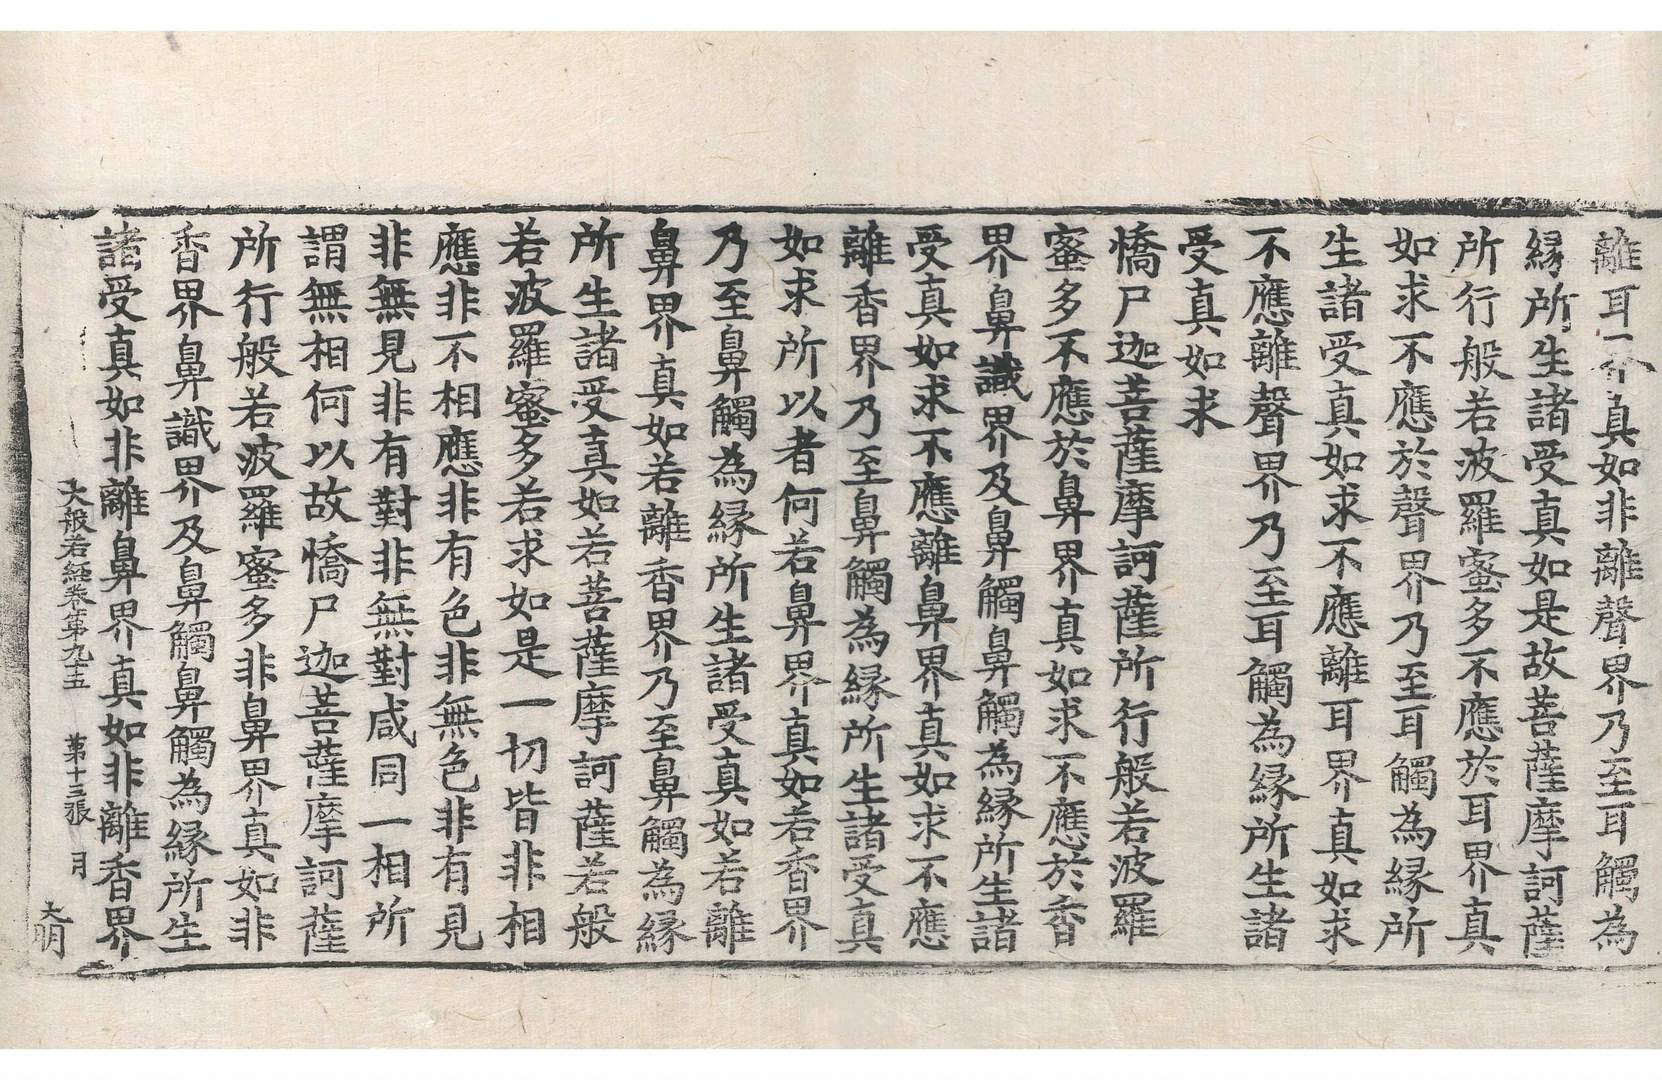 離耳界真如非離聲界乃至耳觸為
緣所生諸受真如是故菩薩摩訶薩
所行般若波羅蜜多不應於耳界真
如求不應於聲界乃至耳觸為緣所
生諸受真如求不應離耳界真如求
不應離聲界乃至耳觸為緣所生諸
受真如求
憍尸迦菩薩摩訶薩所行般若波羅
蜜多不應於鼻界真如求不應於香
界鼻識界及鼻觸鼻觸為緣所生諸
受真如求不應離鼻界真如求不應
離香界乃至鼻觸為緣所生諸受真
如求所以者何若鼻界真如若香界
乃至鼻觸為緣所生諸受真如若離
鼻界真如若離香界乃至鼻觸為緣
所生諸受真如若菩薩摩訶薩若般
若波羅蜜多若求如是一切皆非相
應非不相應非有色非無色非有見
非無見非有對非無對咸同一相所
謂無相何以故憍尸迦菩薩摩訶薩
所行般若波羅蜜多非鼻界真如非
香界鼻識界及鼻觸鼻觸為緣所生
諸受真如非離鼻界真如非離香界
大般若經卷第九十五 第十三張 月
大明